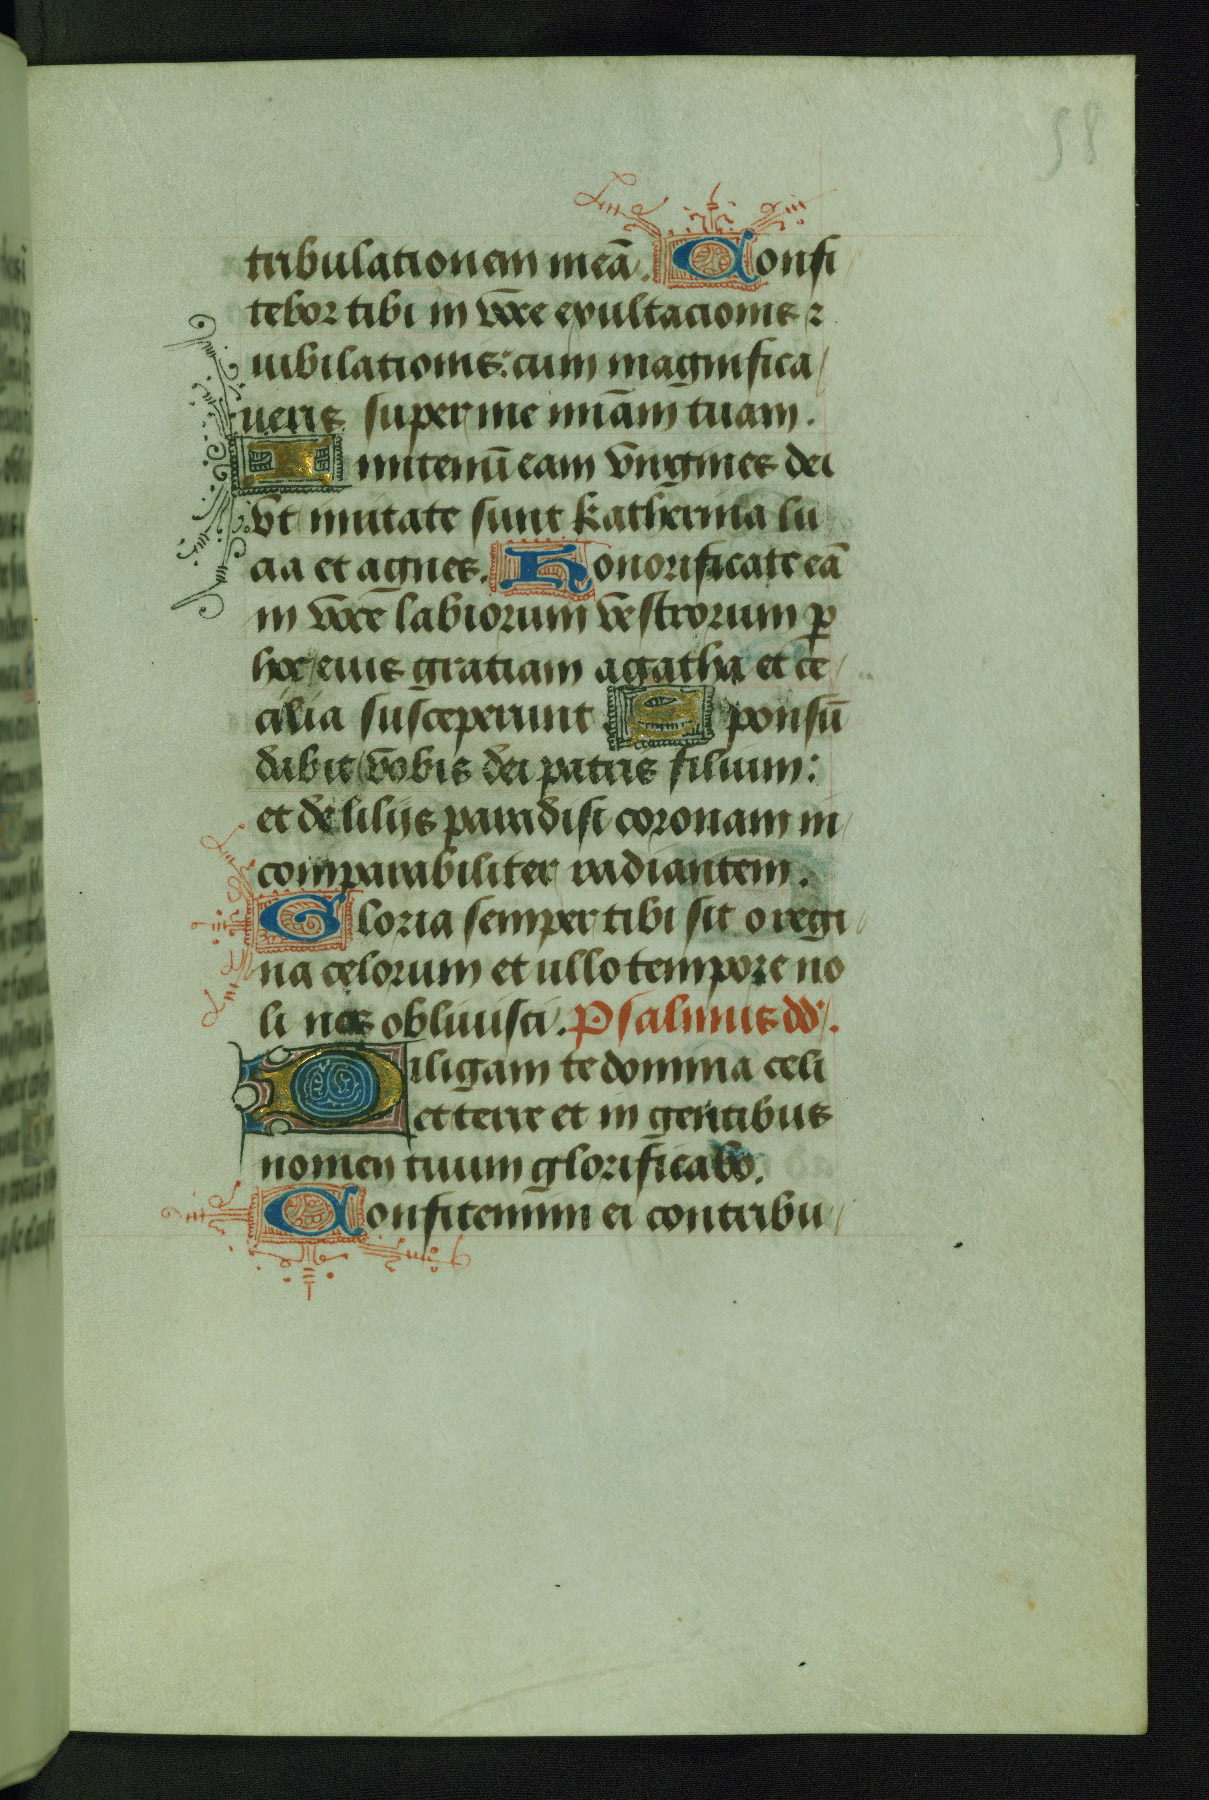 58
tribulationem meā. Confi
tebor tibi in voce exultacionis ⁊
iubilationis: cum magnifica
ueris super me miām tuam.
Imitemī eam virgines dei
vt imitate sunt katherina lu
cia et agnes. Honorificate eā
in voce labiorum vestrorum p
hoc eius gratiam agatha et ce
cilia susceperunt Sponsū
dabit vobis dei patris filium:
et de lilijs paradisi coronam in
comparabiliter radiantem.
Gloria semper tibi sit o regi
na celorum et ullo tempore no
li nos obliuisci. Psalmus dd.
Diligam te domina celi
et terre et in gentibus
nomen tuum glorificabo.
Confitemini ei contribu